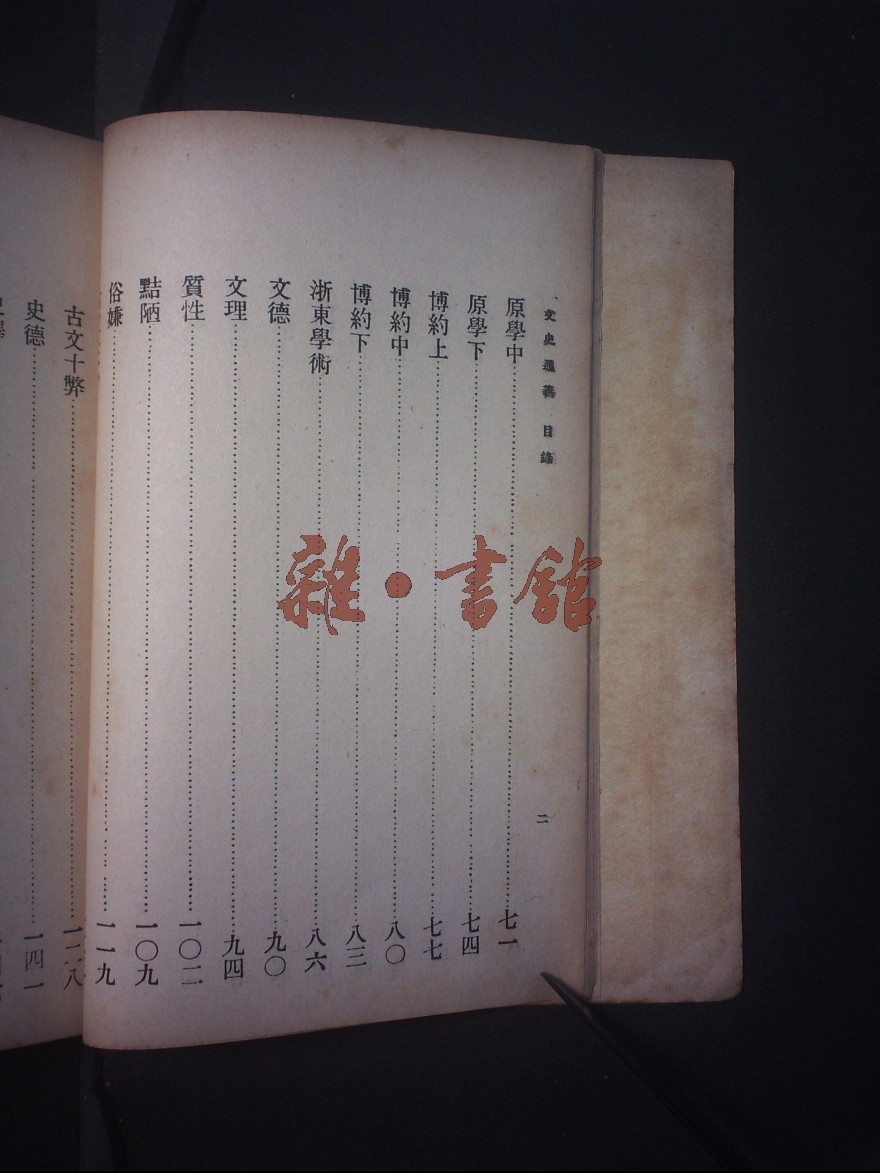 文史通義 目錄
二
原學中……七一
原學下……七四
博約上……七七
博約中……八〇
博約下……八三
浙東學術……八六
文德……九〇
文理……九四
質性……一〇二
黠陋……一〇九
俗嫌……一一九
古文十弊……一二八
史德……一四一
雜·書館